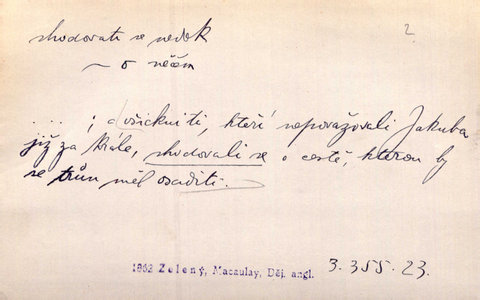 shodovati se nedok 2
~ o něčem
.... ; a všickni ti, kteří nepovažovali Jakuba
již za krále, shodovali se o cestě, kterou by
se trůn měl osaditi.
1862 Zelený, Macaulay, Děj. angl. 3. 355. 23.